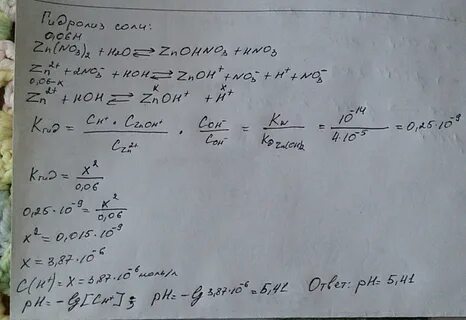 Гидролиз соли:
0,06н
Zn(NO₃)₂ + H₂O ⇄ ZnOHNO₃ + HNO₃
Zn²⁺ + 2NO₃⁻ + HOH ⇄ ZnOH⁺ + NO₃⁻ + H⁺ + NO₃⁻
0,06-x x x
Zn²⁺ + HOH ⇄ ZnOH⁺ + H⁺
Kгид = CH⁺ · CZnOH⁺ / CZn²⁺ · COH⁻ / COH⁻ = Kw / KдZn(OH)₂ = 10⁻¹⁴ / 4·10⁻⁵ = 0,25·10⁻⁹
Kгид = x² / 0,06
0,25·10⁻⁹ = x² / 0,06
x² = 0,015·10⁻⁹
x = 3,87·10⁻⁶
C(H⁺) = x = 3,87·10⁻⁶ моль/л
pH = -lg[CH⁺]; pH = -lg 3,87·10⁻⁶ = 5,41 Ответ: pH = 5,41